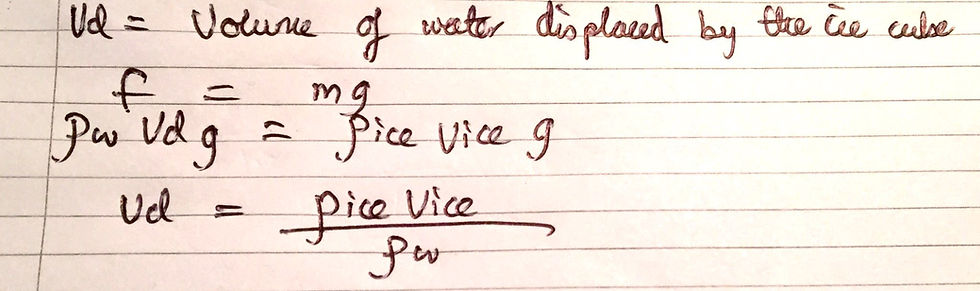 Vd = Volume of water displaced by the ice cube
f = mg
ρw Vd g = ρice Vice g
Vd = ρice Vice
ρw